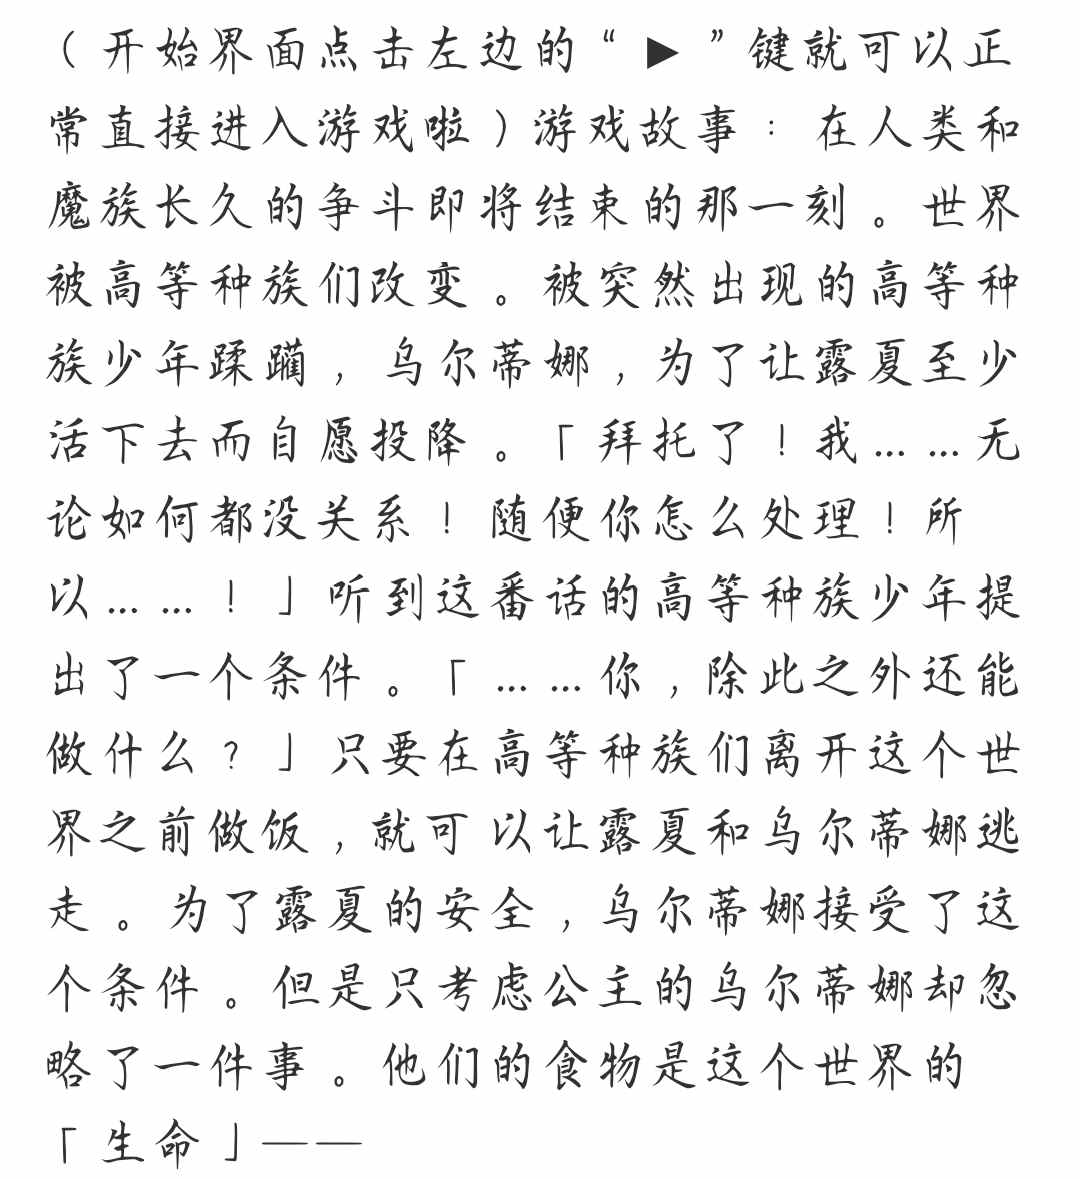 （开始界面点击左边的“▶”键就可以正
常直接进入游戏啦）游戏故事：在人类和
魔族长久的争斗即将结束的那一刻。世界
被高等种族们改变。被突然出现的高等种
族少年蹂躏，乌尔蒂娜，为了让露夏至少
活下去而自愿投降。「拜托了！我……无
论如何都没关系！随便你怎么处理！所
以……！」听到这番话的高等种族少年提
出了一个条件。「……你，除此之外还能
做什么？」只要在高等种族们离开这个世
界之前做饭，就可以让露夏和乌尔蒂娜逃
走。为了露夏的安全，乌尔蒂娜接受了这
个条件。但是只考虑公主的乌尔蒂娜却忽
略了一件事。他们的食物是这个世界的
「生命」——